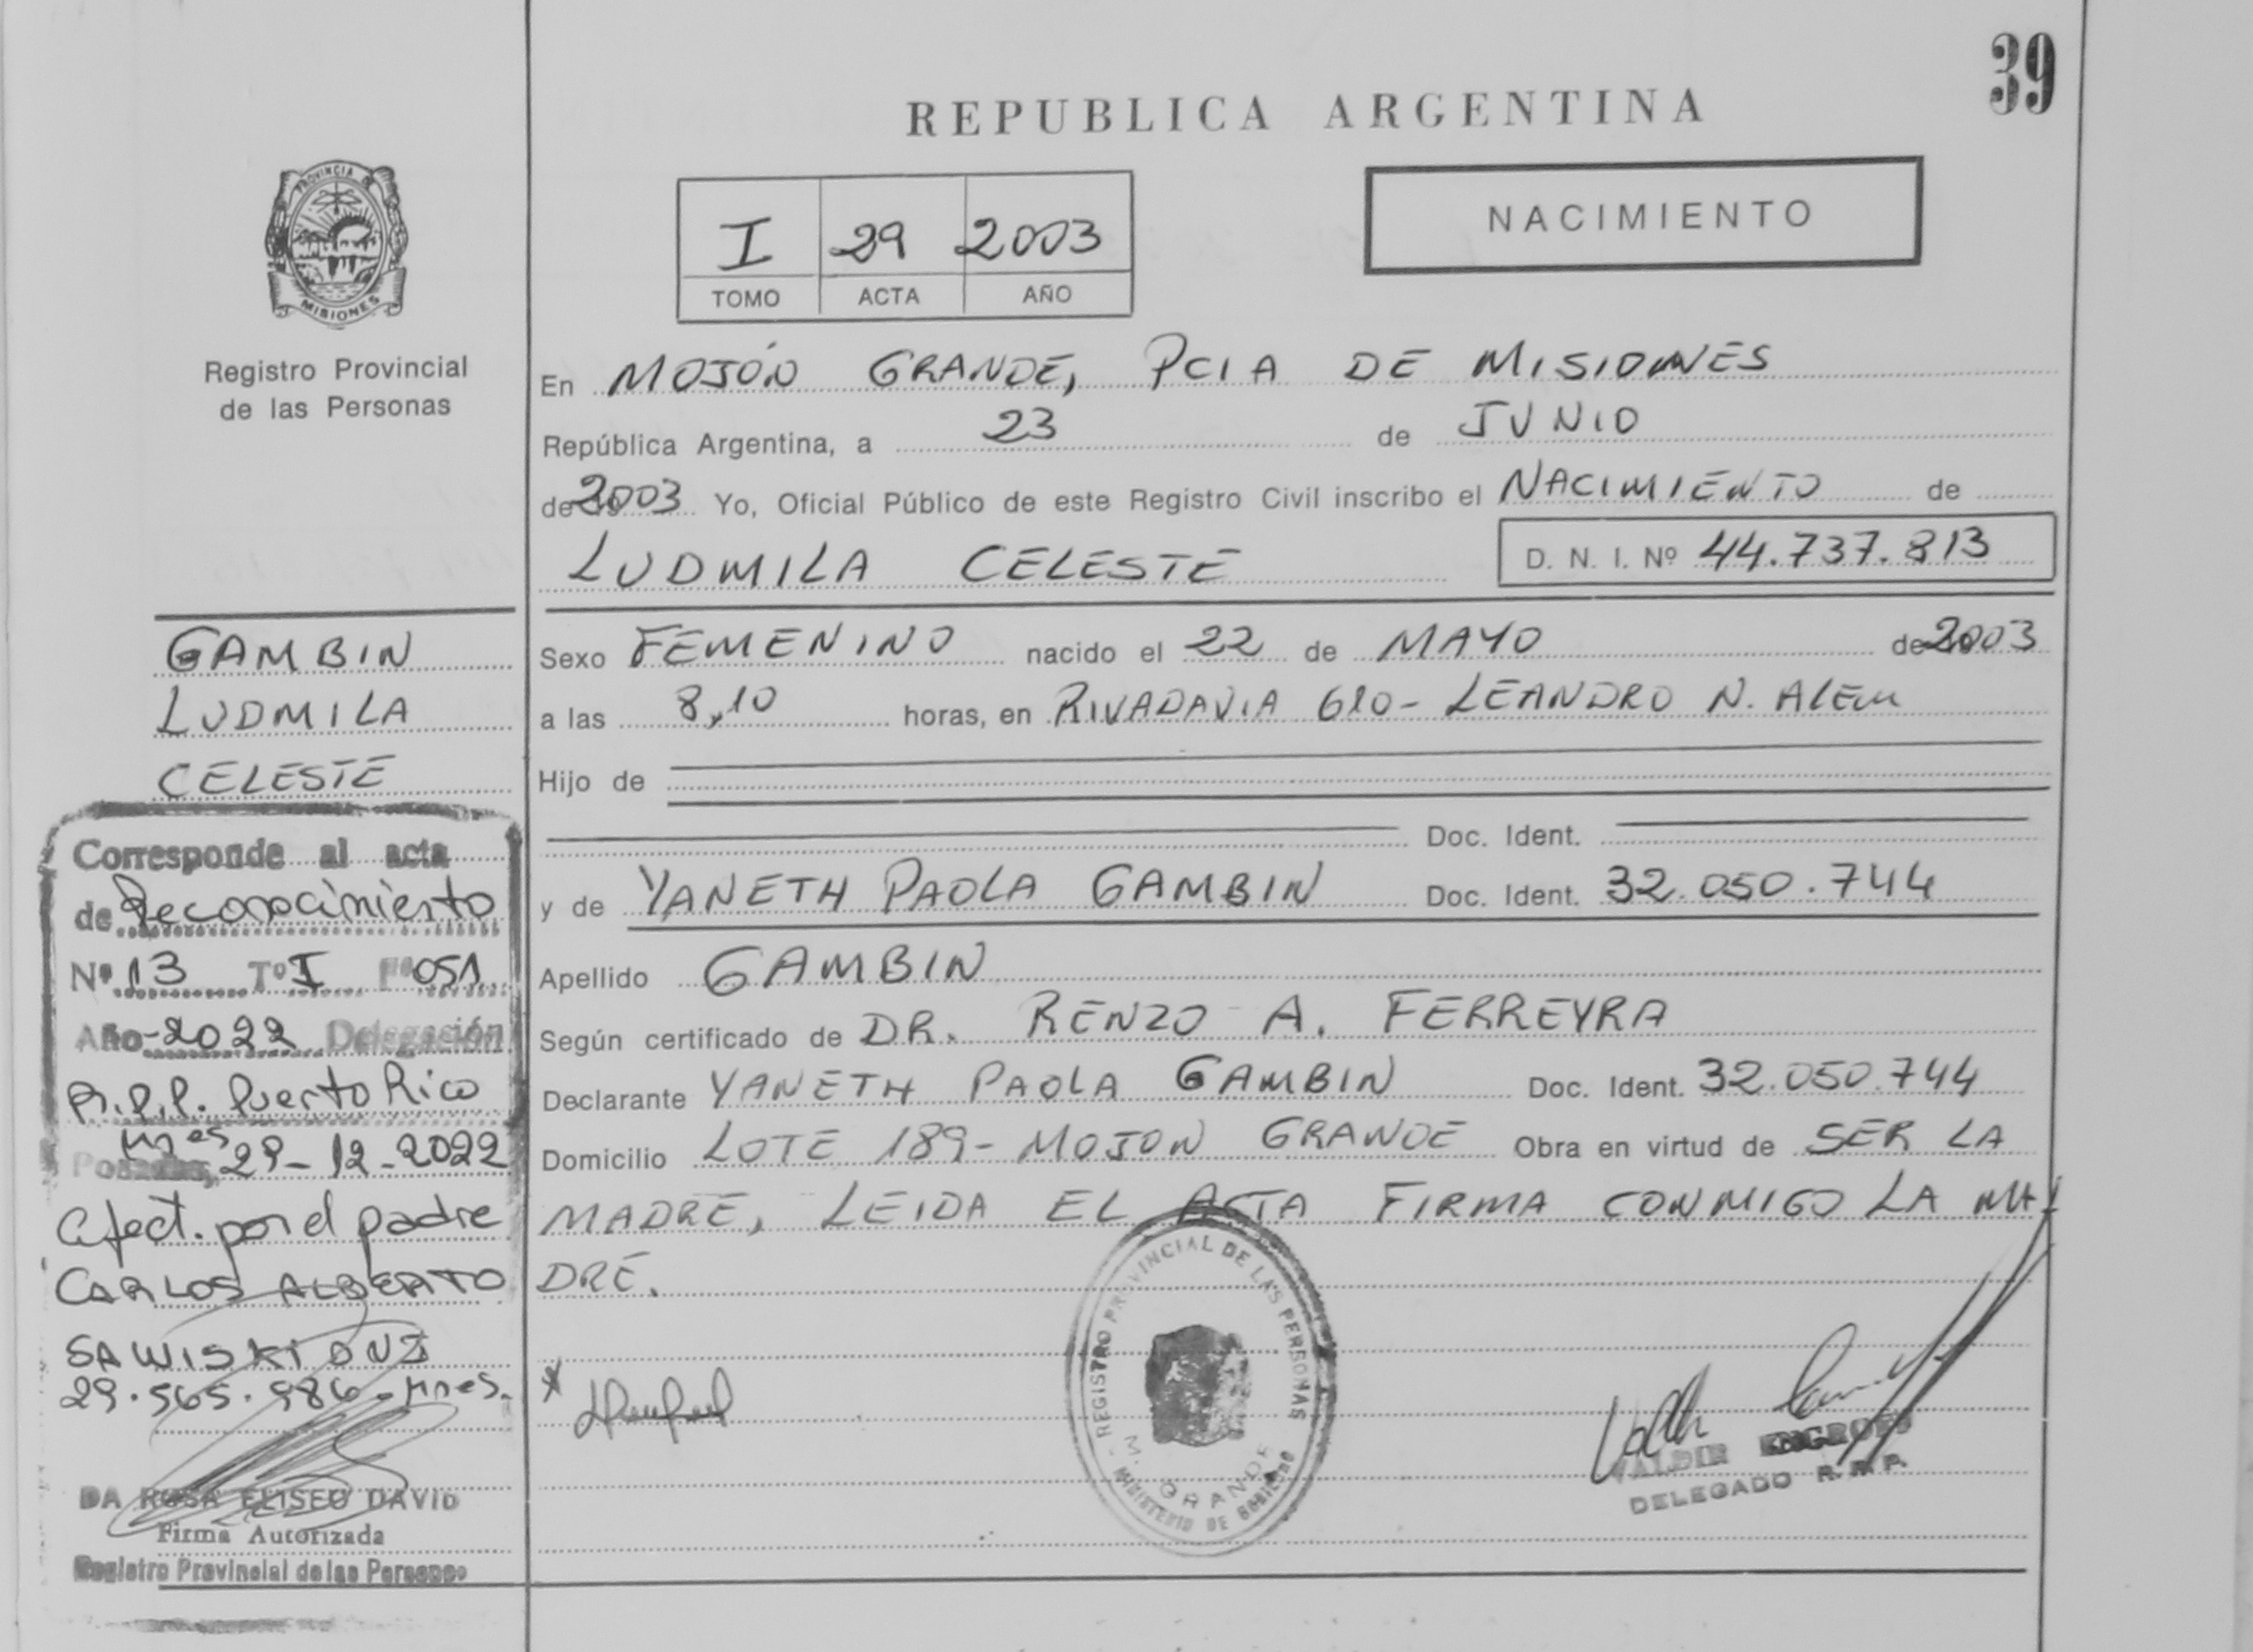 39
REPUBLICA ARGENTINA
NACIMIENTO
I 29 2003
TOMO ACTA AÑO
PROVINCIA DE MISIONES
Registro Provincial
de las Personas
En MOJÓN GRANDE, PCIA DE MISIONES
República Argentina, a 23 de JUNIO
de 2003 Yo, Oficial Público de este Registro Civil inscribo el NACIMIENTO de
LUDMILA CELESTE D. N. I. Nº 44.737.813
GAMBIN
LUDMILA
CELESTE
Sexo FEMENINO nacido el 22 de MAYO de 2003
a las 8,10 horas, en RIVADAVIA 610- LEANDRO N. ALEM
Hijo de
Doc. Ident.
y de YANETH PAOLA GAMBIN Doc. Ident. 32.050.744
Apellido GAMBIN
Según certificado de DR. RENZO A. FERREYRA
Declarante YANETH PAOLA GAMBIN Doc. Ident. 32.050.744
Domicilio LOTE 189- MOJON GRANDE Obra en virtud de SER LA
MADRE, LEIDA EL ACTA FIRMA CONMIGO LA MA-
DRE.
Corresponde al acta
de Reconocimiento
Nº 13 Tº I Fº 051
Año-2022 Delegación
R.P.P. Puerto Rico
Mnes 29-12-2022
Posadas,
efect. por el padre
CARLOS ALBERTO
SAWISKI DNI
29.565.986- Mnes.
DA ROSA ELISEO DAVID
Firma Autorizada
Registro Provincial de las Personas
REGISTRO PROVINCIAL DE LAS PERSONAS
M. GRANDE
MINISTERIO DE GOBIERNO
VALDIR ENGROFF
DELEGADO R.P.P.